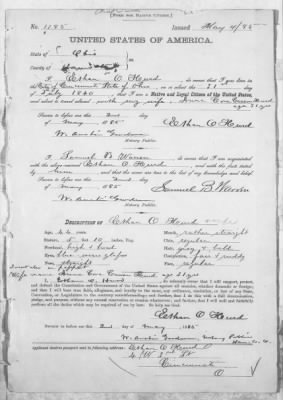 [FORM FOR NATIVE CITIZEN.]
No. 1285 Issued May 4/85
UNITED STATES OF AMERICA.
State of Ohio
County of
I, Ethan O Hurd, do swear that I was born in
City of Cincinnati State of Ohio, on or about the 21 day
of July 1840; that I am a Native and Loyal Citizen of the United States,
and about to travel abroad with my wife
Sworn to before me this 2nd day
of May 1885 Ethan O Hurd
W. Austin Goodman
Notary Public.
I, Samuel B Warren, do swear that I am acquainted
with the above named Ethan O Hurd, and with the facts stated
by him, and that the same are true to the best of my knowledge and belief.
Sworn to before me this 2nd day
of May 1885 Samuel B Warren
W Austin Goodman
Notary Public.
DESCRIPTION OF Ethan O Hurd
Age, 44 years. Mouth, rather straight
Stature, 5 ft 10 inches, Eng. Chin, regular
Forehead, high & broad Hair, gray &
Eyes, blue wears glasses Complexion, fair & ruddy
Nose, straight Face, regular
Wife
and defend the Constitution and Government of the United States against all enemies, whether domestic or foreign;
and that I will bear true faith, allegiance, and loyalty to the same, any ordinance, resolution, or law of any State,
Convention, or Legislature to the contrary notwithstanding; and further, that I do this with a full determination,
pledge, and purpose, without any mental reservation or evasion whatsoever; and further, that I will well and faithfully
perform all the duties which may be required of me by law. So help me God.
Ethan O Hurd
Sworn to before me this 2nd day of May 1885
W Austin Goodman, Notary Public
Applicant desires passport sent to following address:
Ethan O Hurd
Cincinnati
O